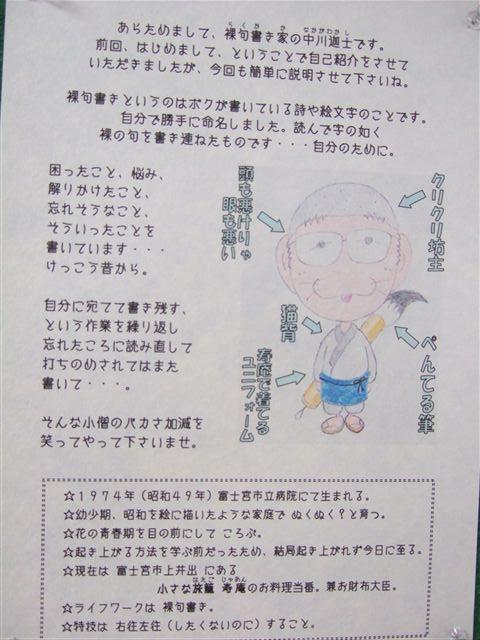 あらためまして、裸句書き家の中川迦士です。
前回、はじめまして、ということで自己紹介をさせて
いただきましたが、今回も簡単に説明させて下さいね。
裸句書きというのはボクが書いている詩や絵文字のことです。
自分で勝手に命名しました。読んで字の如く
裸の句を書き連ねたものです・・・自分のために。
困ったこと、悩み、
解りかけたこと、
忘れそうなこと、
そういったことを
書いています・・・
けっこう昔から。
自分に宛てて書き残す、
という作業を繰り返し
忘れたころに読み直して
打ちのめされてはまた
書いて・・・。
そんな小僧のバカさ加減を
笑ってやって下さいませ。
頭も悪けりゃ
眼も悪い
クリクリ坊主
猫背
ぺんてる筆
寿庵で着てる
ユニフォーム
☆1974年（昭和49年）富士宮市立病院にて生まれる。
☆幼少期、昭和を絵に描いたような家庭で ぬくぬく？と育つ。
☆花の青春期を目の前にして ころぶ。
☆起き上がる方法を学ぶ前だったため、結局起き上がれず今日に至る。
☆現在は 富士宮市上井出 にある
小さな旅籠 寿庵のお料理当番。兼お財布大臣。
☆ライフワークは 裸句書き。
☆特技は 右往左往（したくないのに）すること。